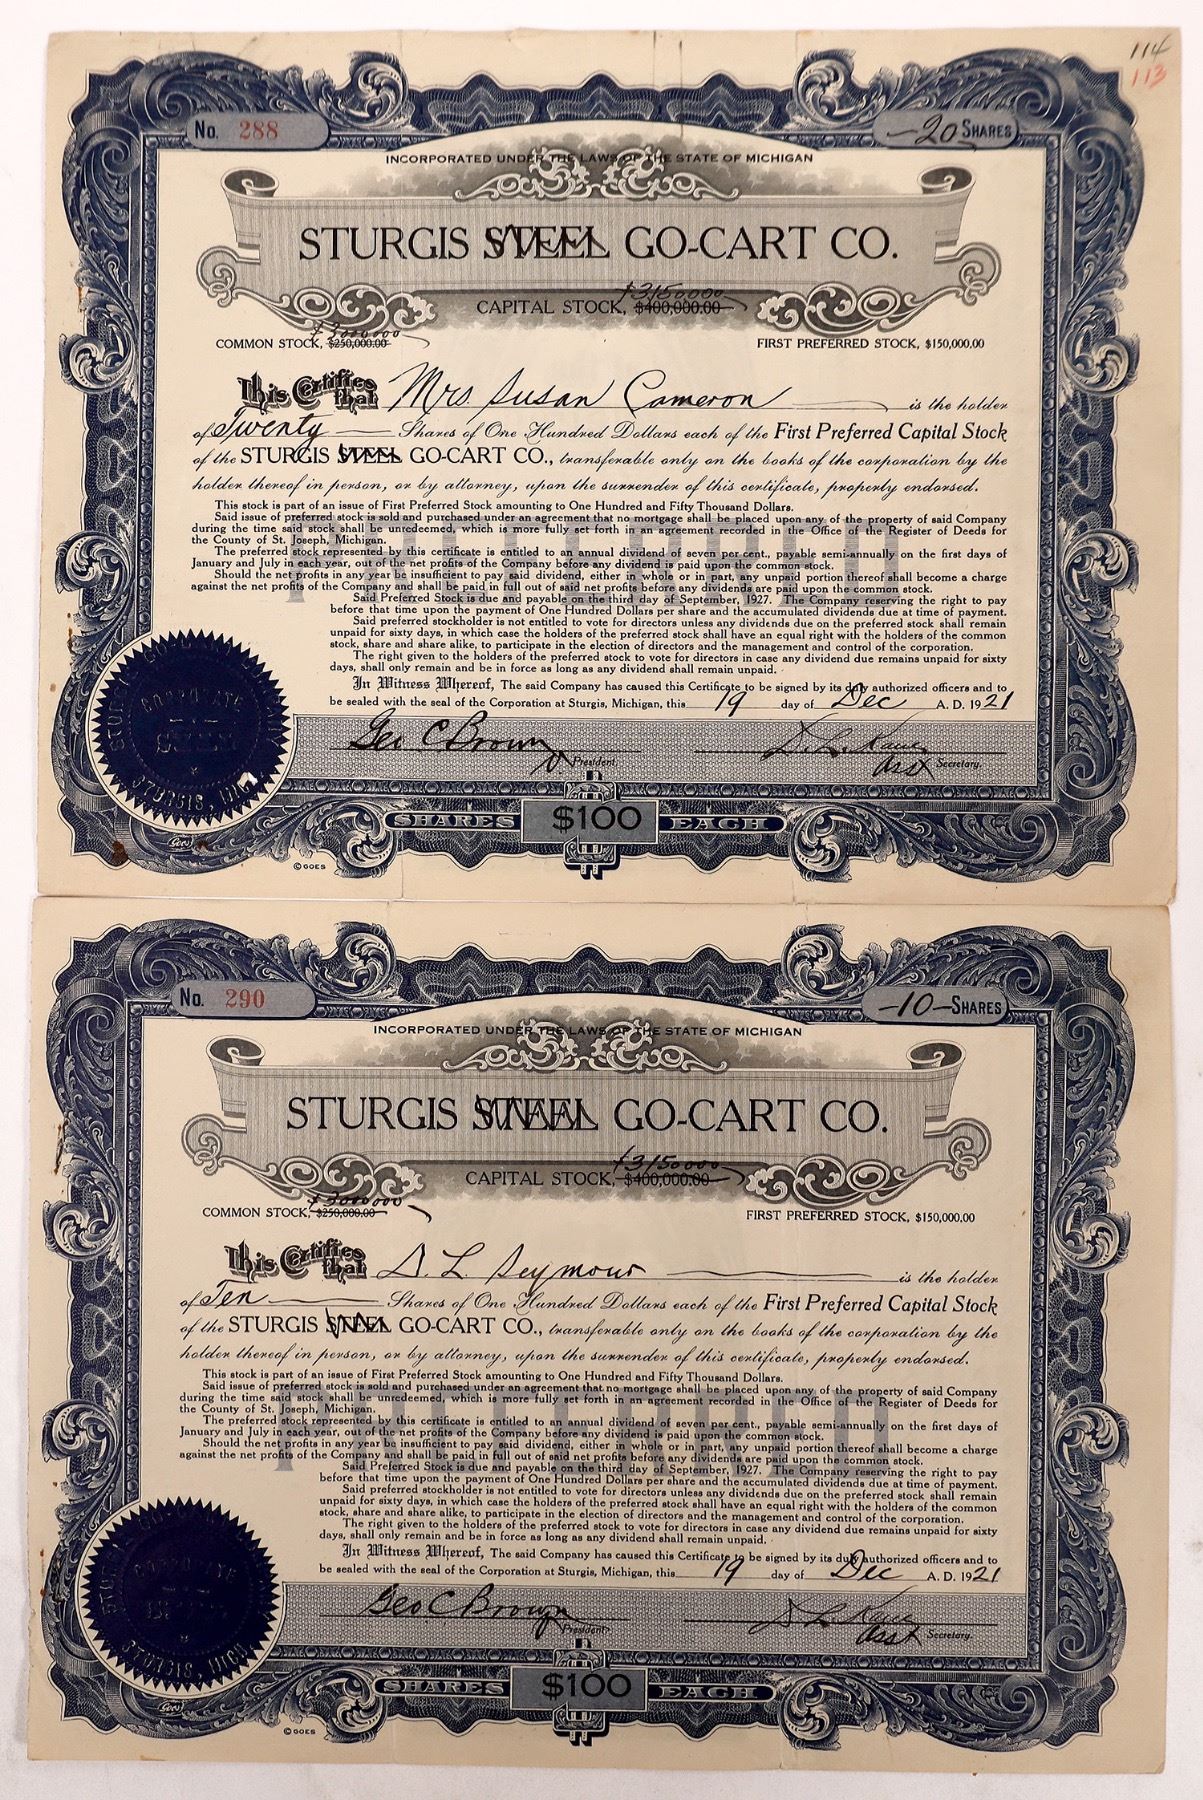 114
113
No. 288
—20 SHARES
INCORPORATED UNDER THE LAWS OF THE STATE OF MICHIGAN
STURGIS STEEL GO-CART CO.
$3150000
CAPITAL STOCK, $400,000.00
$3000000
COMMON STOCK, $250,000.00
FIRST PREFERRED STOCK, $150,000.00
This Certifies that Mrs. Susan Cameron is the holder
of Twenty Shares of One Hundred Dollars each of the First Preferred Capital Stock
of the STURGIS STEEL GO-CART CO., transferable only on the books of the corporation by the
holder thereof in person, or by attorney, upon the surrender of this certificate, properly endorsed.
PREFERRED
This stock is part of an issue of First Preferred Stock amounting to One Hundred and Fifty Thousand Dollars.
Said issue of preferred stock is sold and purchased under an agreement that no mortgage shall be placed upon any of the property of said Company
during the time said stock shall be unredeemed, which is more fully set forth in an agreement recorded in the Office of the Register of Deeds for
the County of St. Joseph, Michigan.
The preferred stock represented by this certificate is entitled to an annual dividend of seven per cent., payable semi-annually on the first days of
January and July in each year, out of the net profits of the Company before any dividend is paid upon the common stock.
Should the net profits in any year be insufficient to pay said dividend, either in whole or in part, any unpaid portion thereof shall become a charge
against the net profits of the Company and shall be paid in full out of said net profits before any dividends are paid upon the common stock.
Said Preferred Stock is due and payable on the third day of September, 1927. The Company reserving the right to pay
before that time upon the payment of One Hundred Dollars per share and the accumulated dividends due at time of payment.
Said preferred stockholder is not entitled to vote for directors unless any dividends due on the preferred stock shall remain
unpaid for sixty days, in which case the holders of the preferred stock shall have an equal right with the holders of the common
stock, share and share alike, to participate in the election of directors and the management and control of the corporation.
The right given to the holders of the preferred stock to vote for directors in case any dividend due remains unpaid for sixty
days, shall only remain and be in force as long as any dividend shall remain unpaid.
In Witness Whereof, The said Company has caused this Certificate to be signed by its duly authorized officers and to
be sealed with the seal of the Corporation at Sturgis, Michigan, this 19 day of Dec A. D. 1921
CORPORATE
SEAL
STURGIS, MICH.
Geo C Brown
President.
Asst Secretary.
Goes
© GOES
SHARES $100 EACH
No. 290
—10—SHARES
INCORPORATED UNDER THE LAWS OF THE STATE OF MICHIGAN
STURGIS STEEL GO-CART CO.
$3150000
CAPITAL STOCK, $400,000.00
$3000000
COMMON STOCK, $250,000.00
FIRST PREFERRED STOCK, $150,000.00
This Certifies that D. L. Seymour is the holder
of Ten Shares of One Hundred Dollars each of the First Preferred Capital Stock
of the STURGIS STEEL GO-CART CO., transferable only on the books of the corporation by the
holder thereof in person, or by attorney, upon the surrender of this certificate, properly endorsed.
PREFERRED
This stock is part of an issue of First Preferred Stock amounting to One Hundred and Fifty Thousand Dollars.
Said issue of preferred stock is sold and purchased under an agreement that no mortgage shall be placed upon any of the property of said Company
during the time said stock shall be unredeemed, which is more fully set forth in an agreement recorded in the Office of the Register of Deeds for
the County of St. Joseph, Michigan.
The preferred stock represented by this certificate is entitled to an annual dividend of seven per cent., payable semi-annually on the first days of
January and July in each year, out of the net profits of the Company before any dividend is paid upon the common stock.
Should the net profits in any year be insufficient to pay said dividend, either in whole or in part, any unpaid portion thereof shall become a charge
against the net profits of the Company and shall be paid in full out of said net profits before any dividends are paid upon the common stock.
Said Preferred Stock is due and payable on the third day of September, 1927. The Company reserving the right to pay
before that time upon the payment of One Hundred Dollars per share and the accumulated dividends due at time of payment.
Said preferred stockholder is not entitled to vote for directors unless any dividends due on the preferred stock shall remain
unpaid for sixty days, in which case the holders of the preferred stock shall have an equal right with the holders of the common
stock, share and share alike, to participate in the election of directors and the management and control of the corporation.
The right given to the holders of the preferred stock to vote for directors in case any dividend due remains unpaid for sixty
days, shall only remain and be in force as long as any dividend shall remain unpaid.
In Witness Whereof, The said Company has caused this Certificate to be signed by its duly authorized officers and to
be sealed with the seal of the Corporation at Sturgis, Michigan, this 19 day of Dec A. D. 1921
CORPORATE
STURGIS, MICH.
Geo C Brown
President.
Asst Secretary.
Goes
© GOES
SHARES $100 EACH